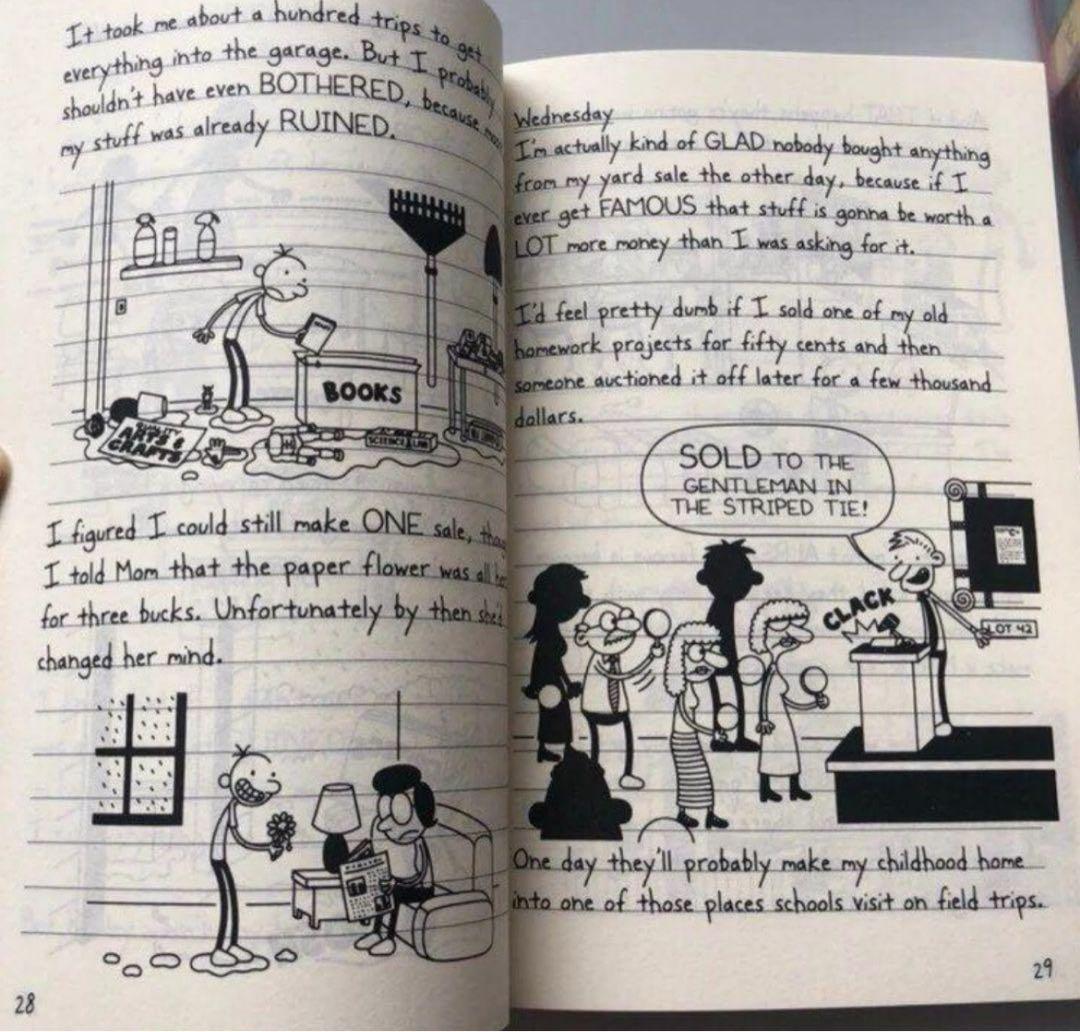 It took me about a hundred trips to get
everything into the garage. But I probably
shouldn't have even BOTHERED, because most
my stuff was already RUINED.
BOOKS
ARTS &
CRAFTS
SCIENCE LAB
I figured I could still make ONE sale,
I told Mom that the paper flower was all
for three bucks. Unfortunately by then she'd
changed her mind.
28
Wednesday
I'm actually kind of GLAD nobody bought anything
from my yard sale the other day, because if I
ever get FAMOUS that stuff is gonna be worth a
LOT more money than I was asking for it.
I'd feel pretty dumb if I sold one of my old
homework projects for fifty cents and then
someone auctioned it off later for a few thousand
dollars.
SOLD TO THE
GENTLEMAN IN
THE STRIPED TIE!
CLACK
LOT 42
One day they'll probably make my childhood home
into one of those places schools visit on field trips.
29